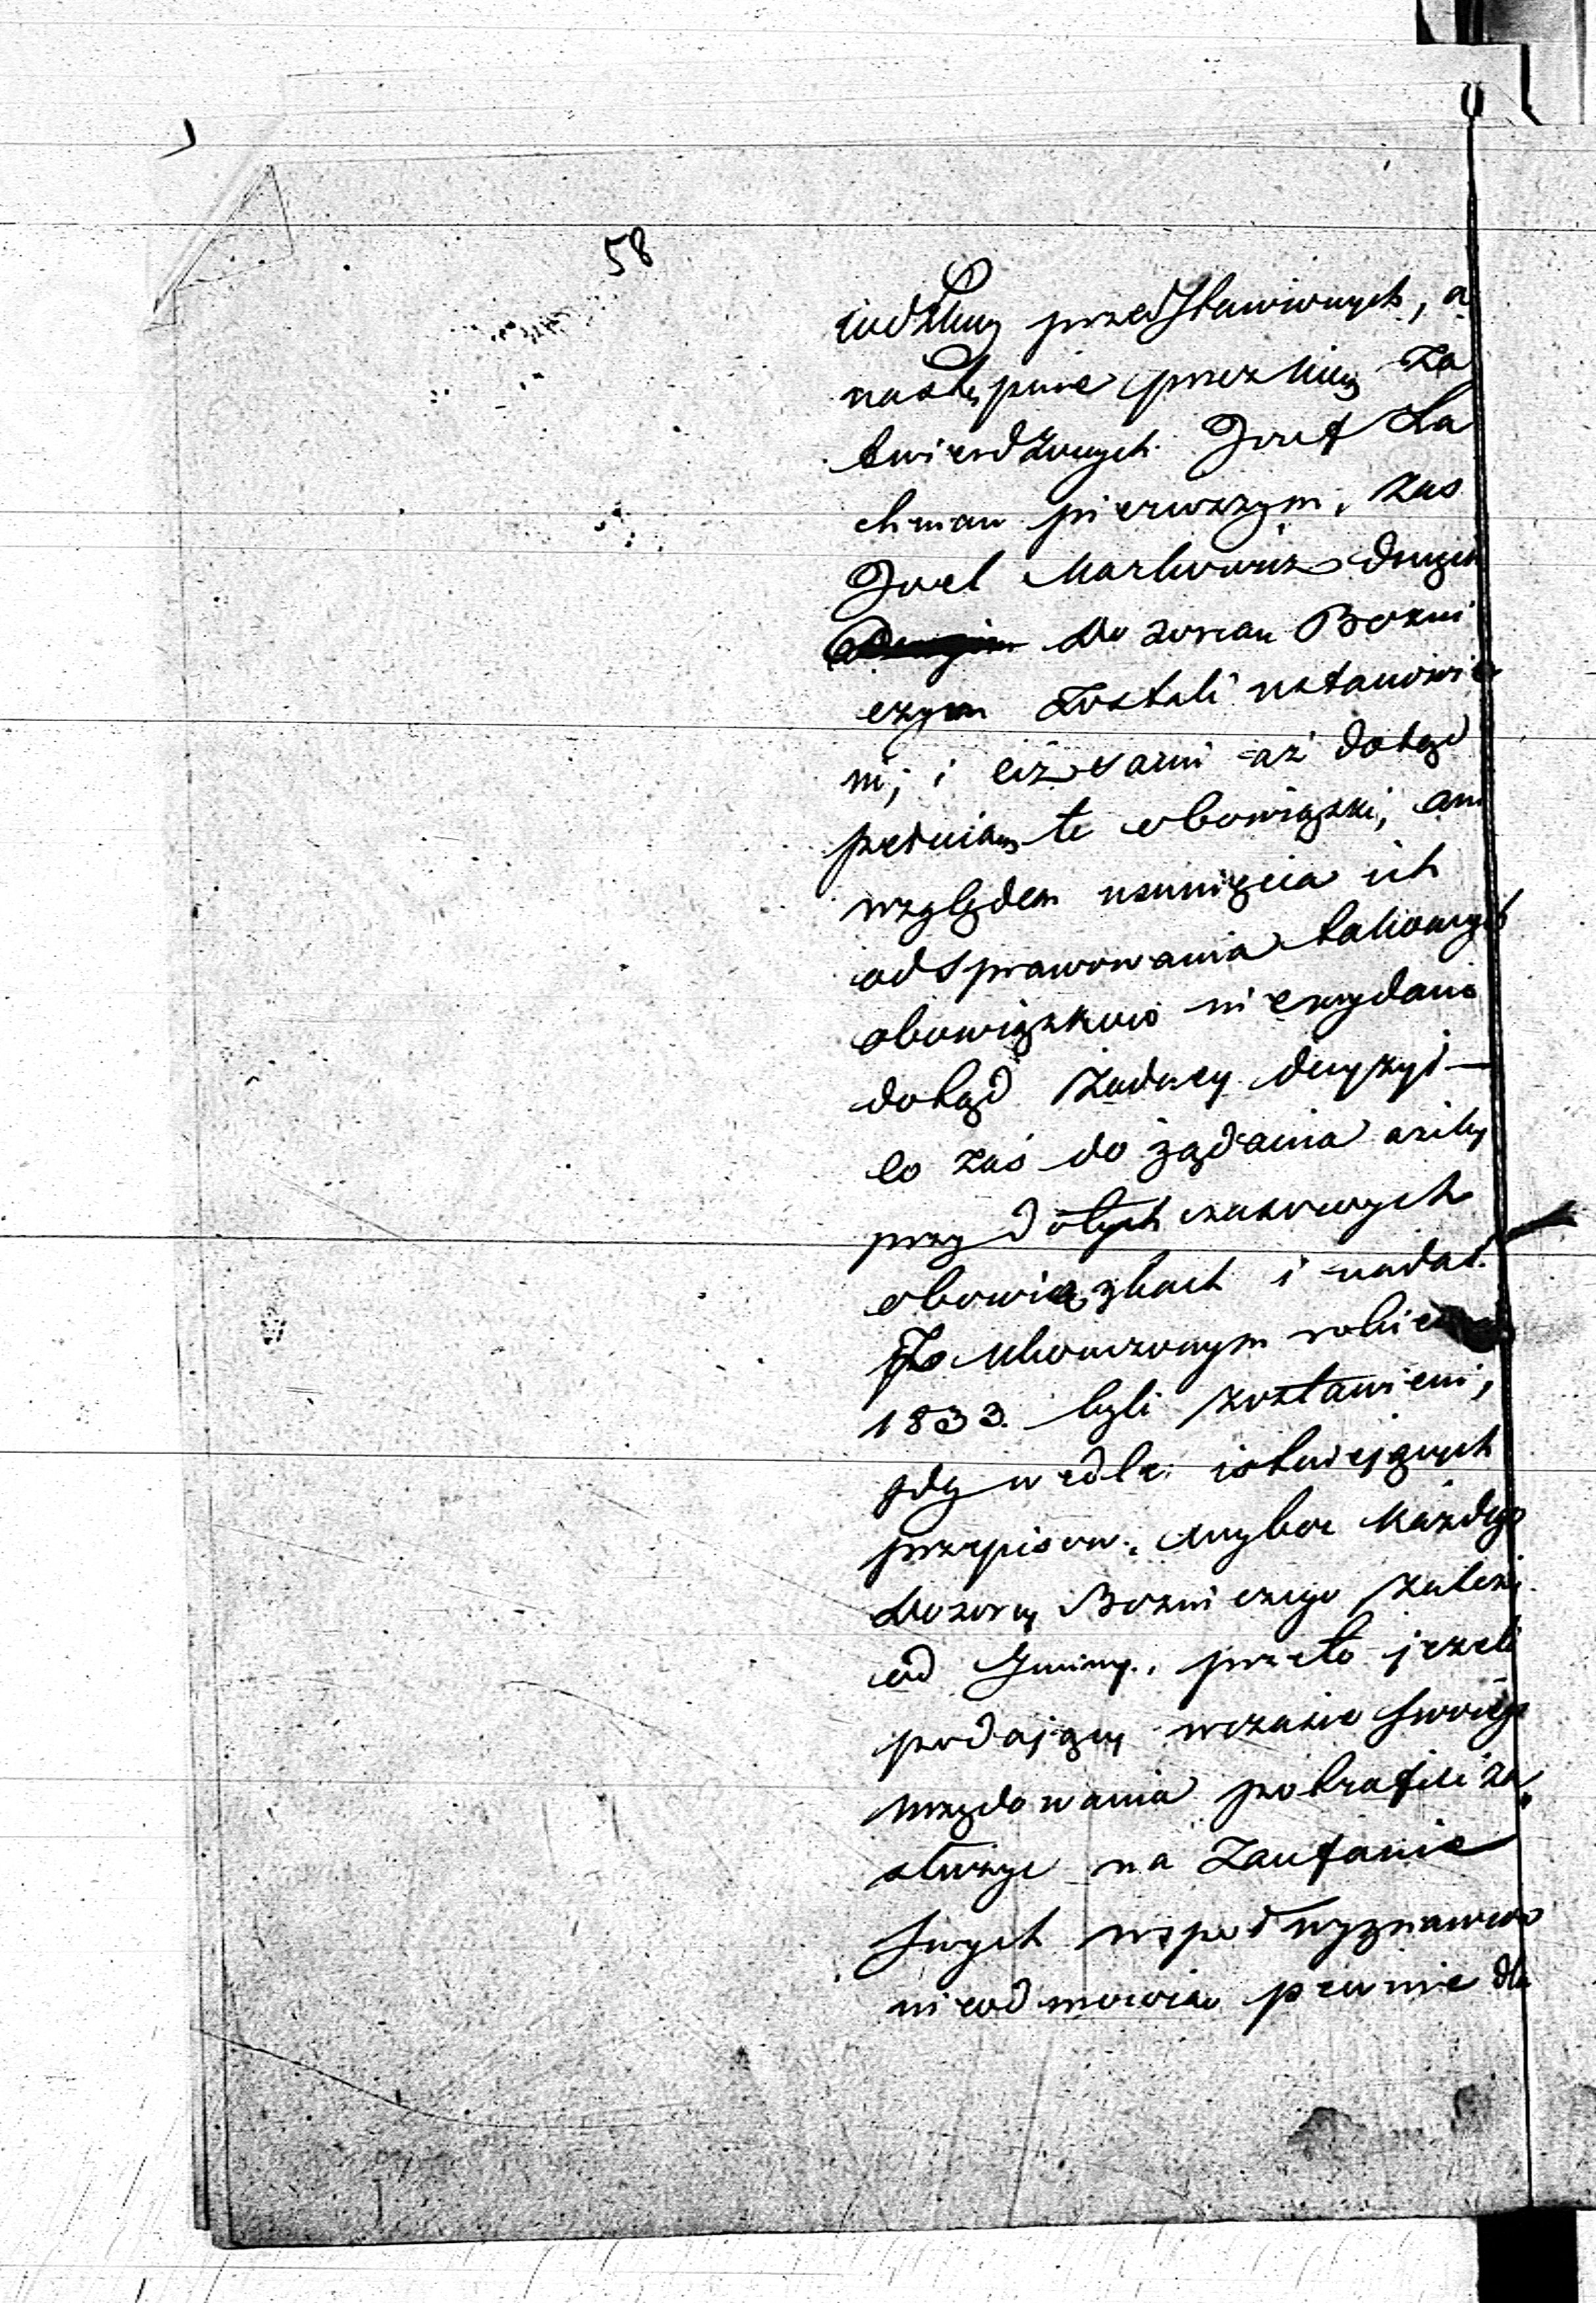 58
przedstawionych, a
następnie przez nią za
twierdzonych Josef La
chman pierwszym, zas
Joel Markowicz drugim
Dozorcami Bożni
czym zostali ustanowie
ni; i ciż sami aż dotąd
pełnią te obowiązki, ani
względem usunięcia ich
od sprawowania takowych
obowiązków nie wydano
dotąd żadney decyzyi —
co zaś do żądania ażeby
przy dotychczasowych
obowiązkach i nadal
po ukończonym rokiem
1833. byli zostawieni,
gdy wedle istniejących
przepisow, wybor każdego
Dozorcy Bożniczego zależy
od Gminy, przeto jeżeli
podający wczasie swoiego
urzędowania potrafili za
służyć na zaufanie
swych wspołwyznawców
nieodmowią pewnie dla